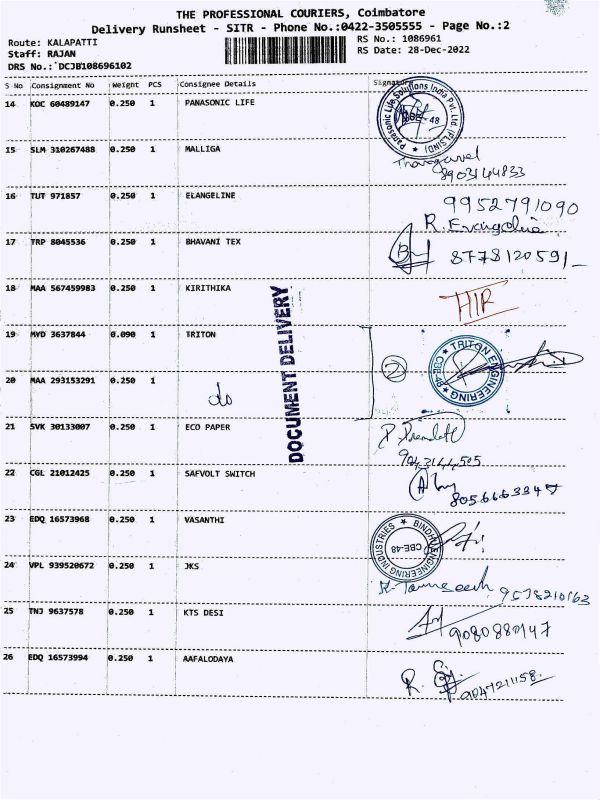 THE PROFESSIONAL COURIERS, Coimbatore
Delivery Runsheet - SITR - Phone No.:0422-3505555 - Page No.:2
Route: KALAPATTI
Staff: RAJAN
DRS No.: DCJB108696102
RS No.: 1086961
RS Date: 28-Dec-2022
S No Consignment No Weight PCS Consignee Details Signature
14 KOC 60489147 0.250 1 PANASONIC LIFE
Panasonic Life Solutions India Pvt. Ltd (PLSIND)
15 SLM 310267488 0.250 1 MALLIGA
8903144833
16 TUT 971857 0.250 1 ELANGELINE
9952791090
17 TRP 8045536 0.250 1 BHAVANI TEX
8778120591
18 MAA 567459983 0.250 1 KIRITHIKA
DOCUMENT DELIVERY
19 MYD 3637844 0.090 1 TRITON
2
TRITON ENGINEERING
20 MAA 293153291 0.250 1 do
21 SVK 30133007 0.250 1 ECO PAPER
22 CGL 21012425 0.250 1 SAFVOLT SWITCH
23 EDQ 16573968 0.250 1 VASANTHI
BINDHU ENGINEERING INDUSTRIES
CBE-48
24 VPL 939520672 0.250 1 JKS
9578210163
25 TNJ 9637578 0.250 1 KTS DESI
9080880147
26 EDQ 16573994 0.250 1 AAFALODAYA